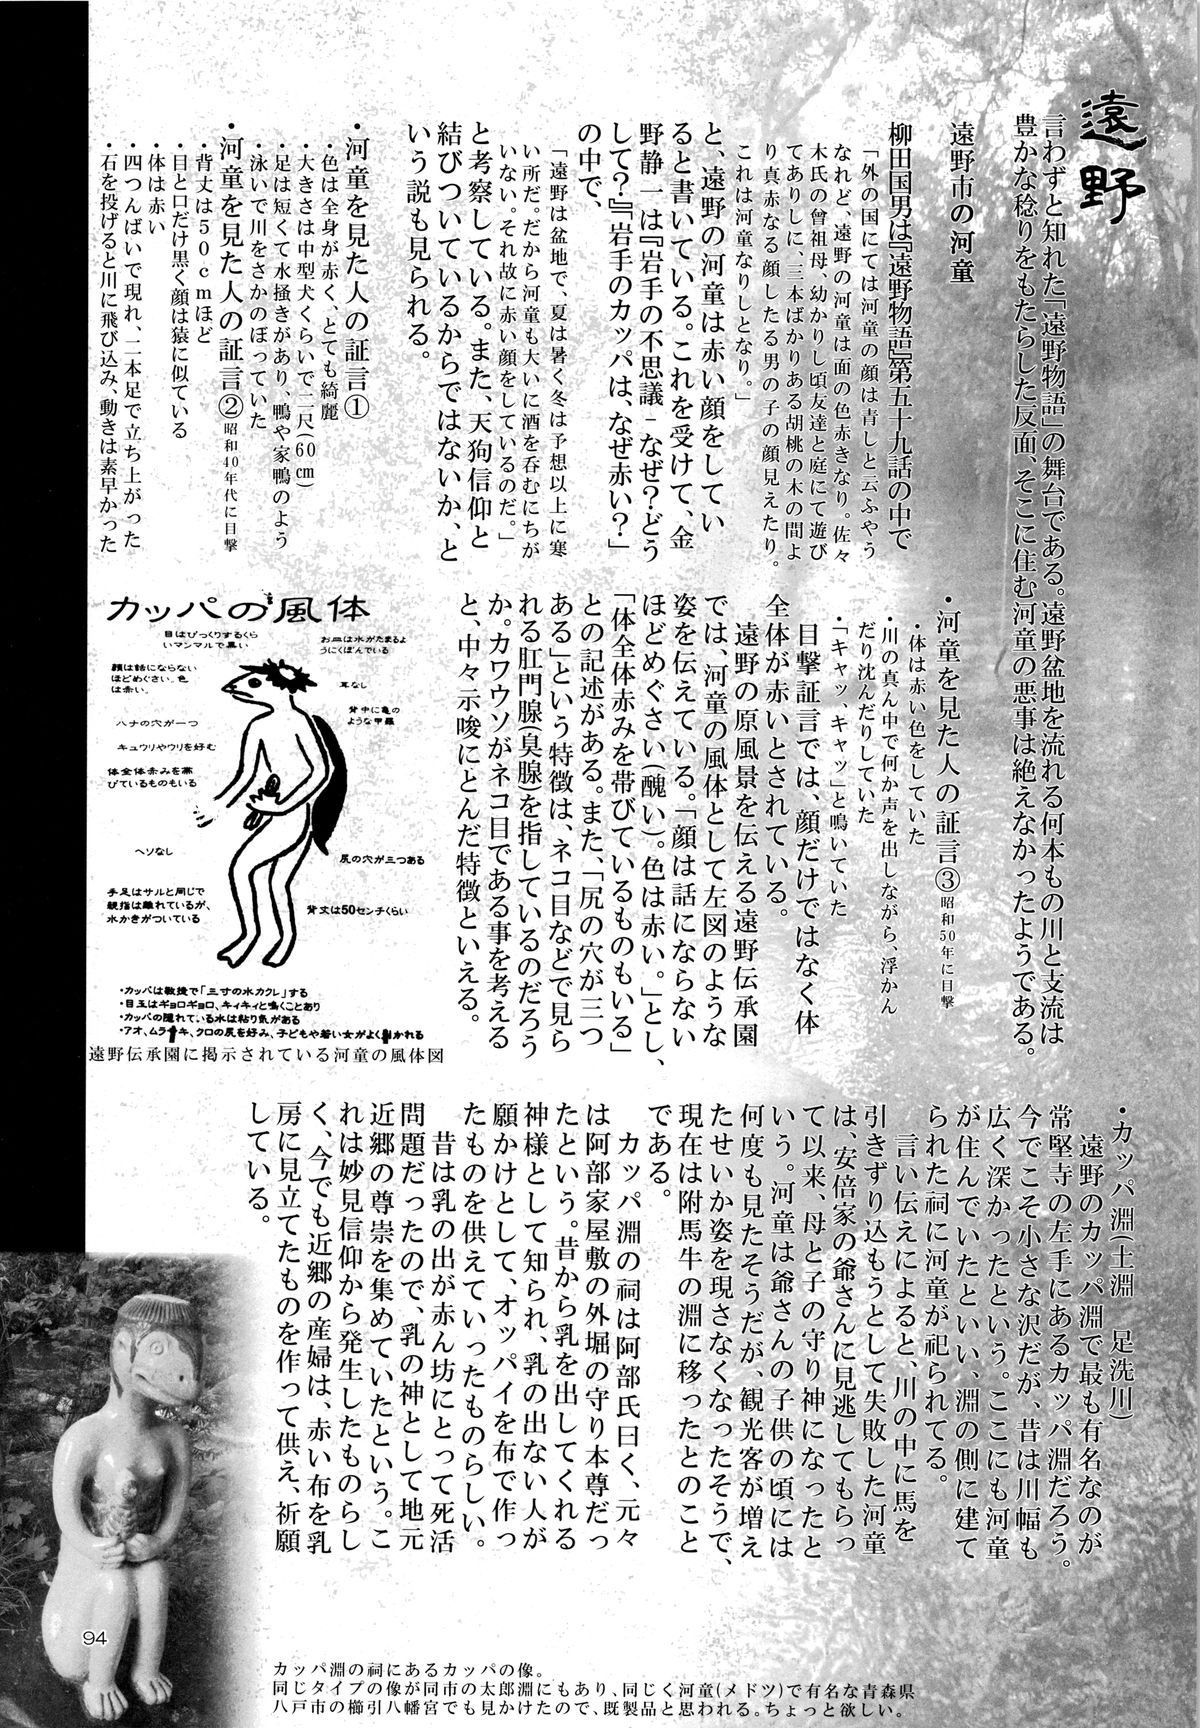 遠野
言わずと知れた「遠野物語」の舞台である。遠野盆地を流れる何本もの川と支流は
豊かな稔りをもたらした反面、そこに住む河童の悪事は絶えなかったようである。
遠野市の河童
柳田国男は『遠野物語』第五十九話の中で
「外の国にては河童の顔は青しと云ふやう
なれど、遠野の河童は面の色赤きなり。佐々
木氏の曾祖母、幼かりし頃友達と庭にて遊び
てありしに、三本ばかりある胡桃の木の間よ
り真赤なる顔したる男の子の顔見えたり。
これは河童なりしとなり。」
と、遠野の河童は赤い顔をしてい
ると書いている。これを受けて、金
野静一は『岩手の不思議-なぜ?どう
して?』『岩手のカッパは、なぜ赤い?」
の中で、
「遠野は盆地で、夏は暑く冬は予想以上に寒
い所だ。だから河童も大いに酒を呑むにちが
いない。それ故に赤い顔をしているのだ。」
と考察している。また、天狗信仰と
結びついているからではないか、と
いう説も見られる。
・河童を見た人の証言①
・色は全身が赤く、とても綺麗
・大きさは中型犬くらいで二尺(60㎝)
・足は短くて水掻きがあり、鴨や家鴨のよう
・泳いで川をさかのぼっていた
・河童を見た人の証言②昭和40年代に目撃
・背丈は50cmほど
・目と口だけ黒く顔は猿に似ている
・体は赤い
・四つんばいで現れ、二本足で立ち上がった
・石を投げると川に飛び込み、動きは素早かった
・河童を見た人の証言③昭和50年に目撃
・体は赤い色をしていた
・川の真ん中で何か声を出しながら、浮かん
だり沈んだりしていた
・「キャッ、キャッ」と鳴いていた
目撃証言では、顔だけではなく体
全体が赤いとされている。
遠野の原風景を伝える遠野伝承園
では、河童の風体として左図のような
姿を伝えている。「顔は話にならない
ほどめぐさい(醜い)。色は赤い。」とし、
「体全体赤みを帯びているものもいる」
との記述がある。また、「尻の穴が三つ
ある」という特徴は、ネコ目などで見ら
れる肛門腺(臭腺)を指しているのだろう
か。カワウソがネコ目である事を考える
と、中々示唆にとんだ特徴といえる。
カッパの風体
目はびっくりするくら
いマンマルで黒い
お皿は水がたまるよ
うにくぼんでいる
顔は話にならない
ほどめぐさい。色
は赤い。
耳なし
背中に亀の
ような甲羅
ハナの穴が一つ
キュウリやウリを好む
体全体赤みを帯
びているものもいる
ヘソなし
尻の穴が三つある
手足はサルと同じで
親指は離れているが、
水かきがついている
背丈は50センチくらい
・カッパは敏捷で「三寸の水カクレ」する
・目玉はギョロギョロ、キィキィと鳴くことあり
・カッパの隠れている水は粘り気がある
・アオ、ムラサキ、クロの尻を好み、子どもや若い女がよく引かれる
遠野伝承園に掲示されている河童の風体図
・カッパ淵(土淵 足洗川)
遠野のカッパ淵で最も有名なのが
常堅寺の左手にあるカッパ淵だろう。
今でこそ小さな沢だが、昔は川幅も
広く深かったという。ここにも河童
が住んでいたといい、淵の側に建て
られた祠に河童が祀られてる。
言い伝えによると、川の中に馬を
引きずり込もうとして失敗した河童
は、安倍家の爺さんに見逃してもらっ
て以来、母と子の守り神になったと
いう。河童は爺さんの子供の頃には
何度も見たそうだが、観光客が増え
たせいか姿を現さなくなったそうで、
現在は附馬牛の淵に移ったとのこと
である。
カッパ淵の祠は阿部氏曰く、元々
は阿部家屋敷の外堀の守り本尊だっ
たという。昔から乳を出してくれる
神様として知られ、乳の出ない人が
願かけとして、オッパイを布で作っ
たものを供えていったものらしい。
昔は乳の出が赤ん坊にとって死活
問題だったので、乳の神として地元
近郷の尊崇を集めていたという。こ
れは妙見信仰から発生したものらし
く、今でも近郷の産婦は、赤い布を乳
房に見立てたものを作って供え、祈願
している。
94
カッパ淵の祠にあるカッパの像。
同じタイプの像が同市の太郎淵にもあり、同じく河童(メドツ)で有名な青森県
八戸市の櫛引八幡宮でも見かけたので、既製品と思われる。ちょっと欲しい。